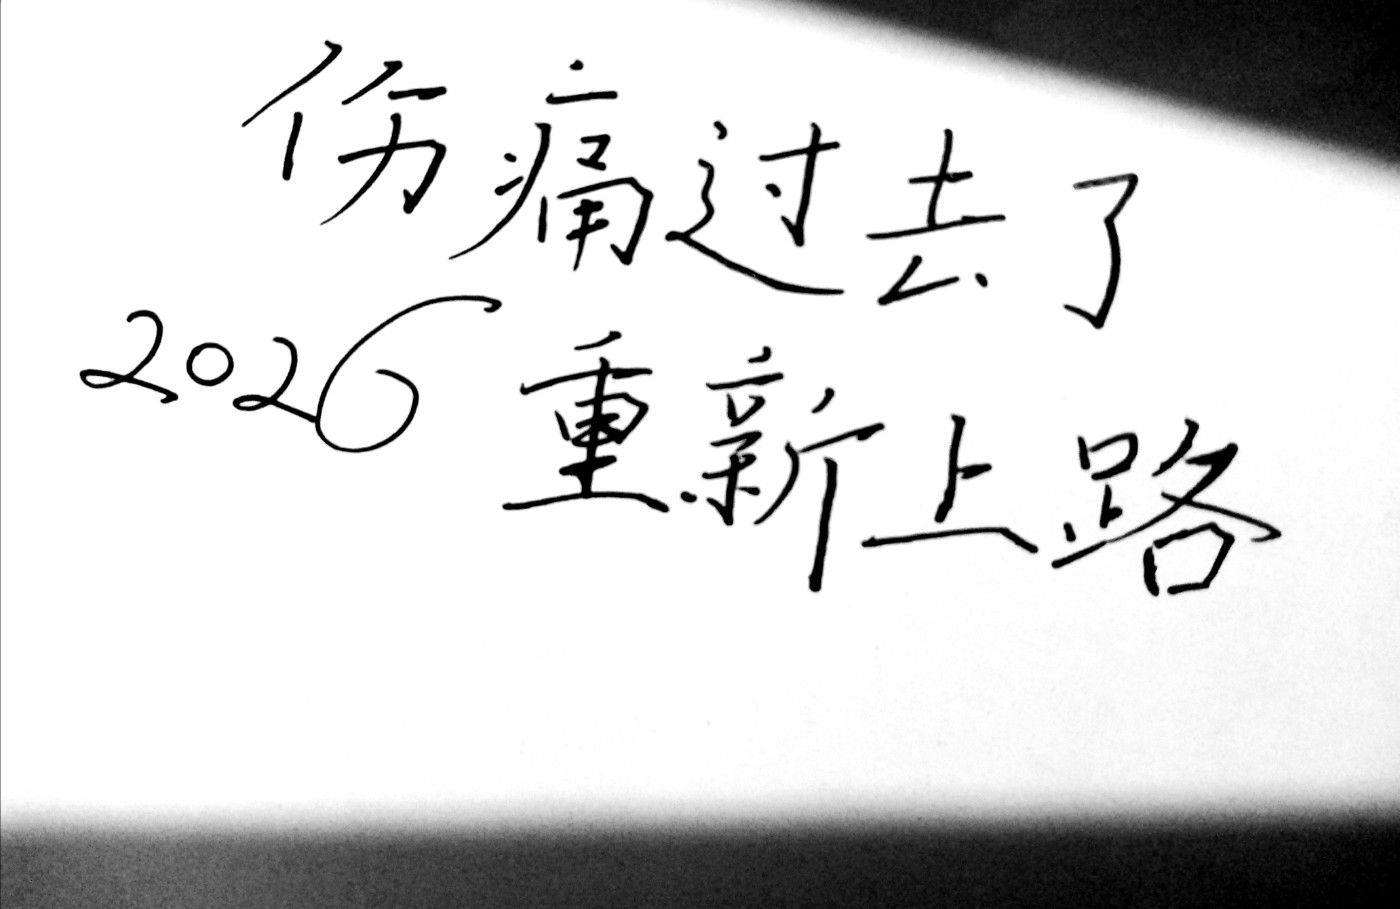 伤痛过去了
2026重新上路